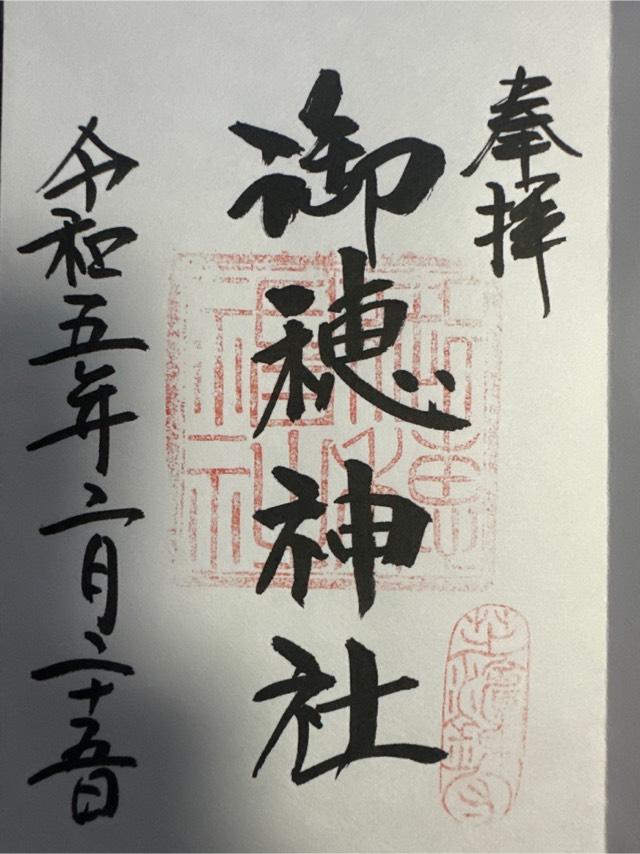 奉拝
御穂神社
令和五年二月二十五日